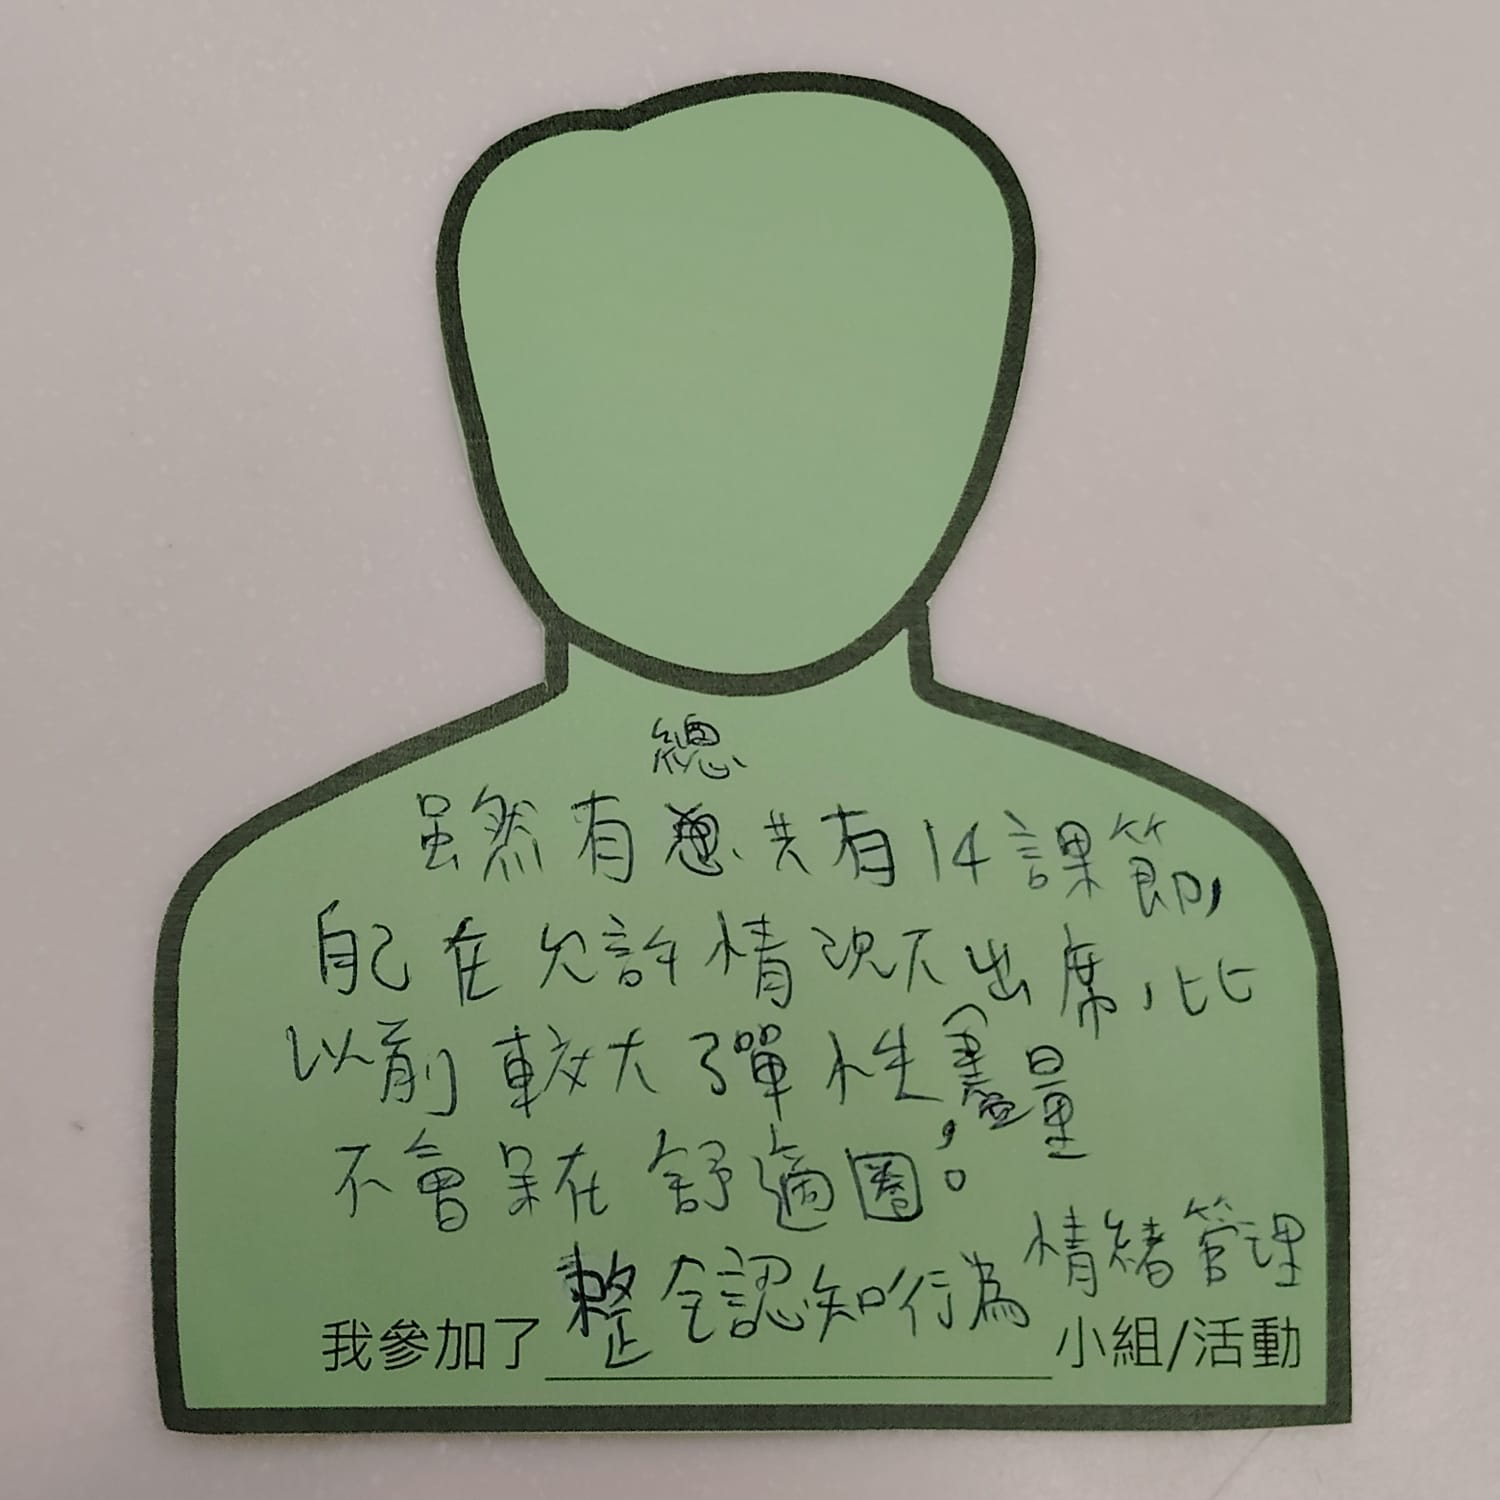 總
虽然有總共有14課節,
自己在允許情況下出席,比
以前較大了彈性,盡量
不會呆在舒適圈。
情緒管理
我參加了整全認知行為小組/活動